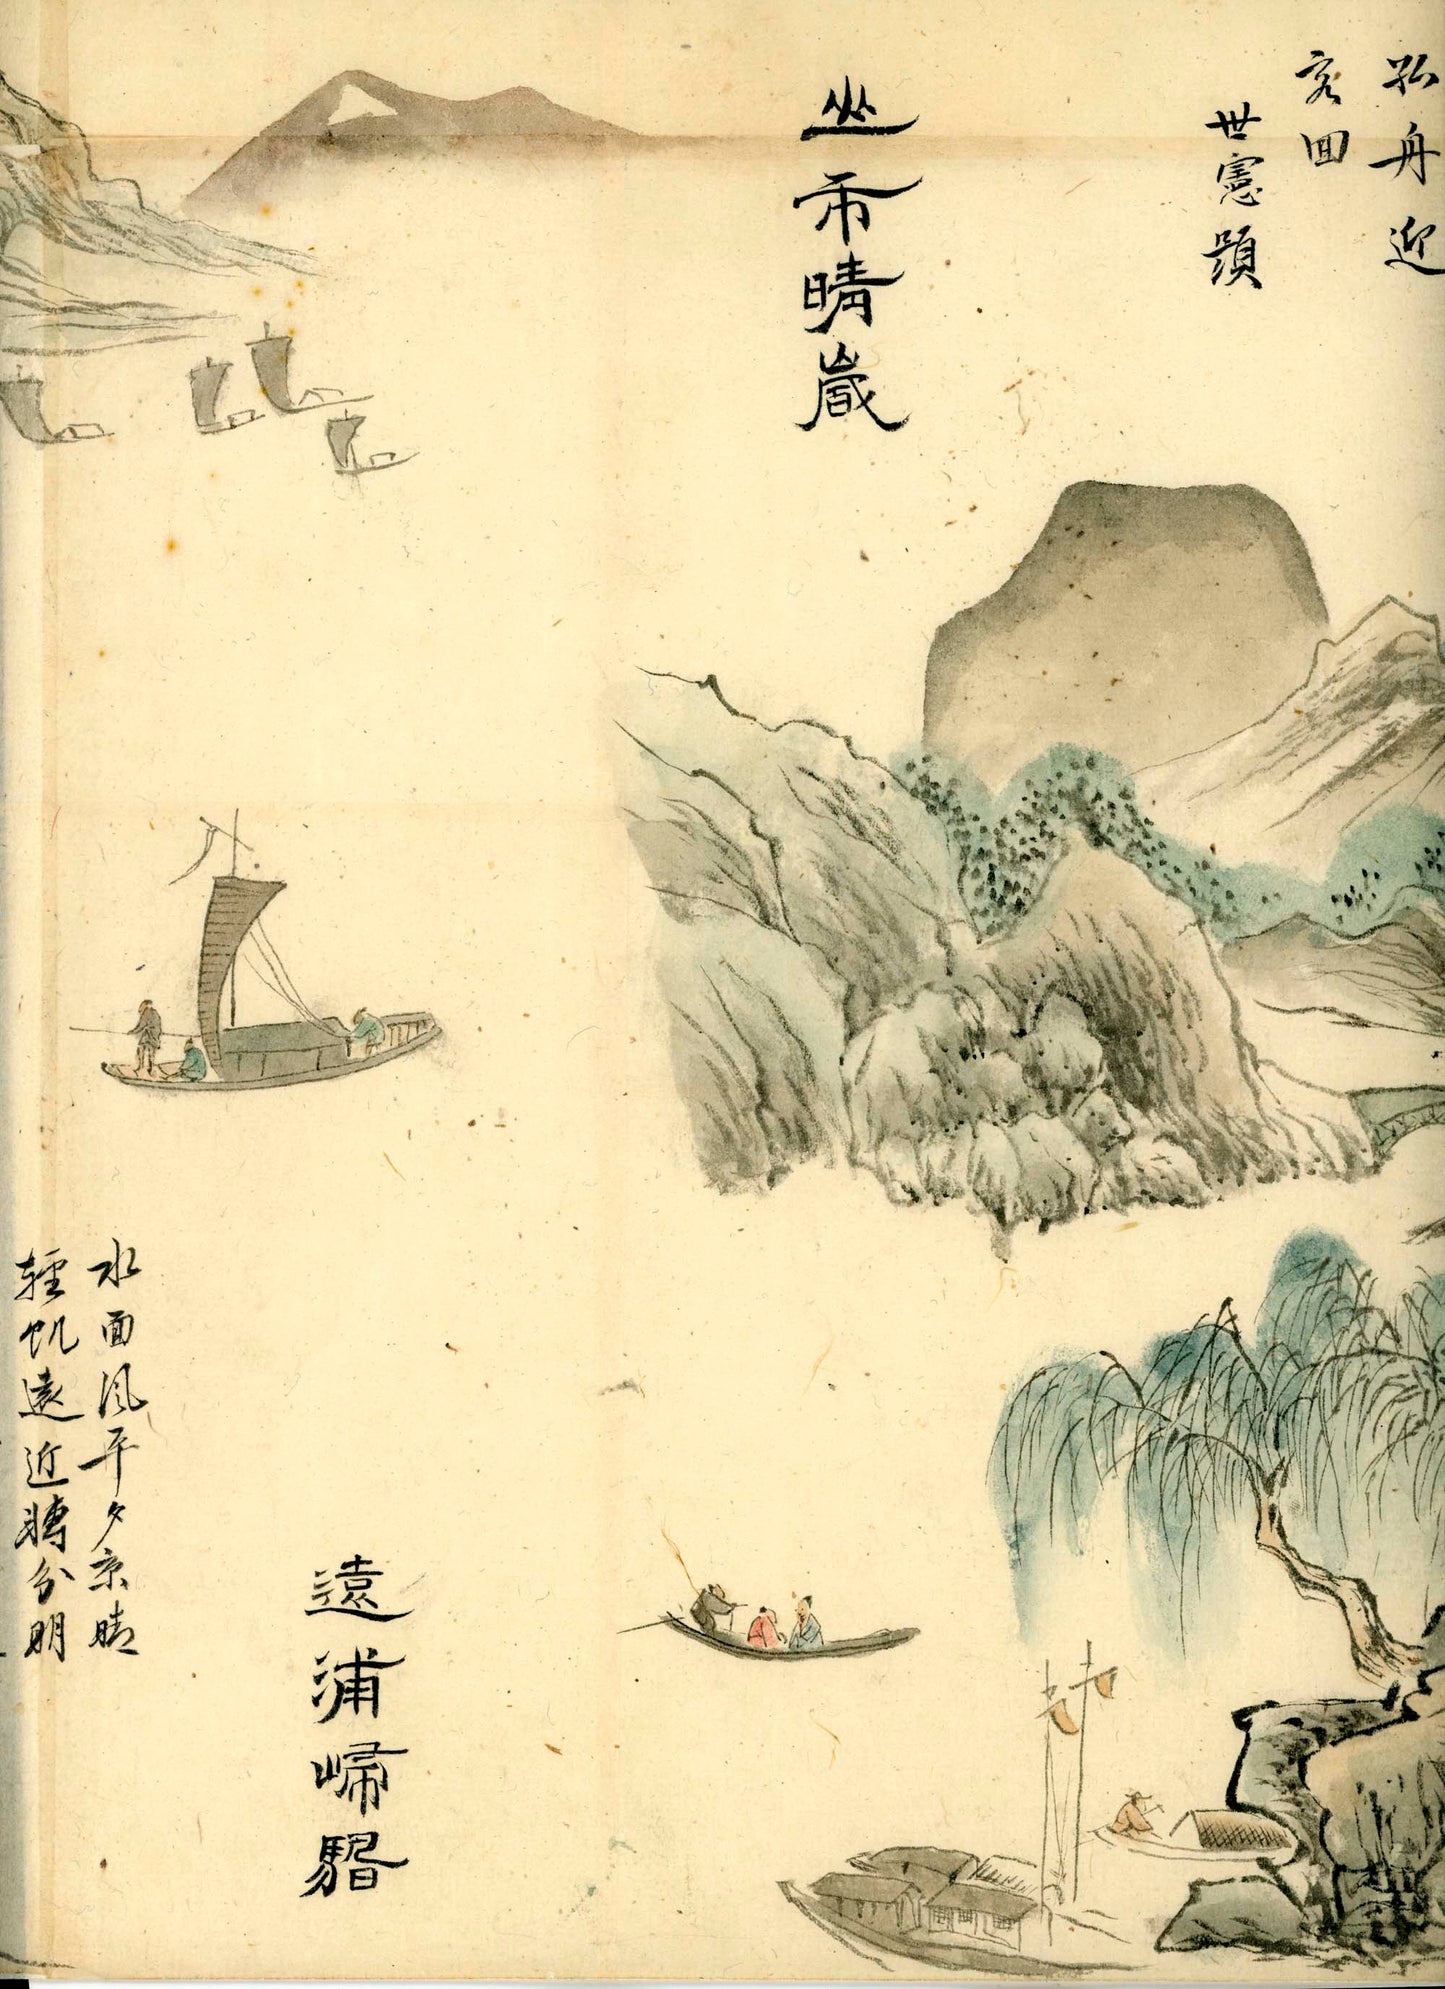 孤舟迎
客回
世憲題
山市晴嵐
遠浦歸
水面風平夕景晴
輕帆遠近轉分明